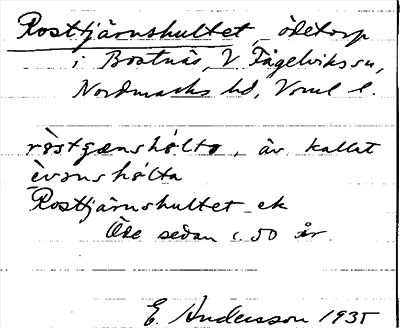 Rosttjärnshultet, ödetorp
i Bostnäs, V Fågelviks sn,
Nordmarks hd, Vrml l.
röstgænshølta, äv. kallat
èvanshølta
Rosttjärnshultet ek
Öde sedan c. 50 år.
E. Andersson 1935